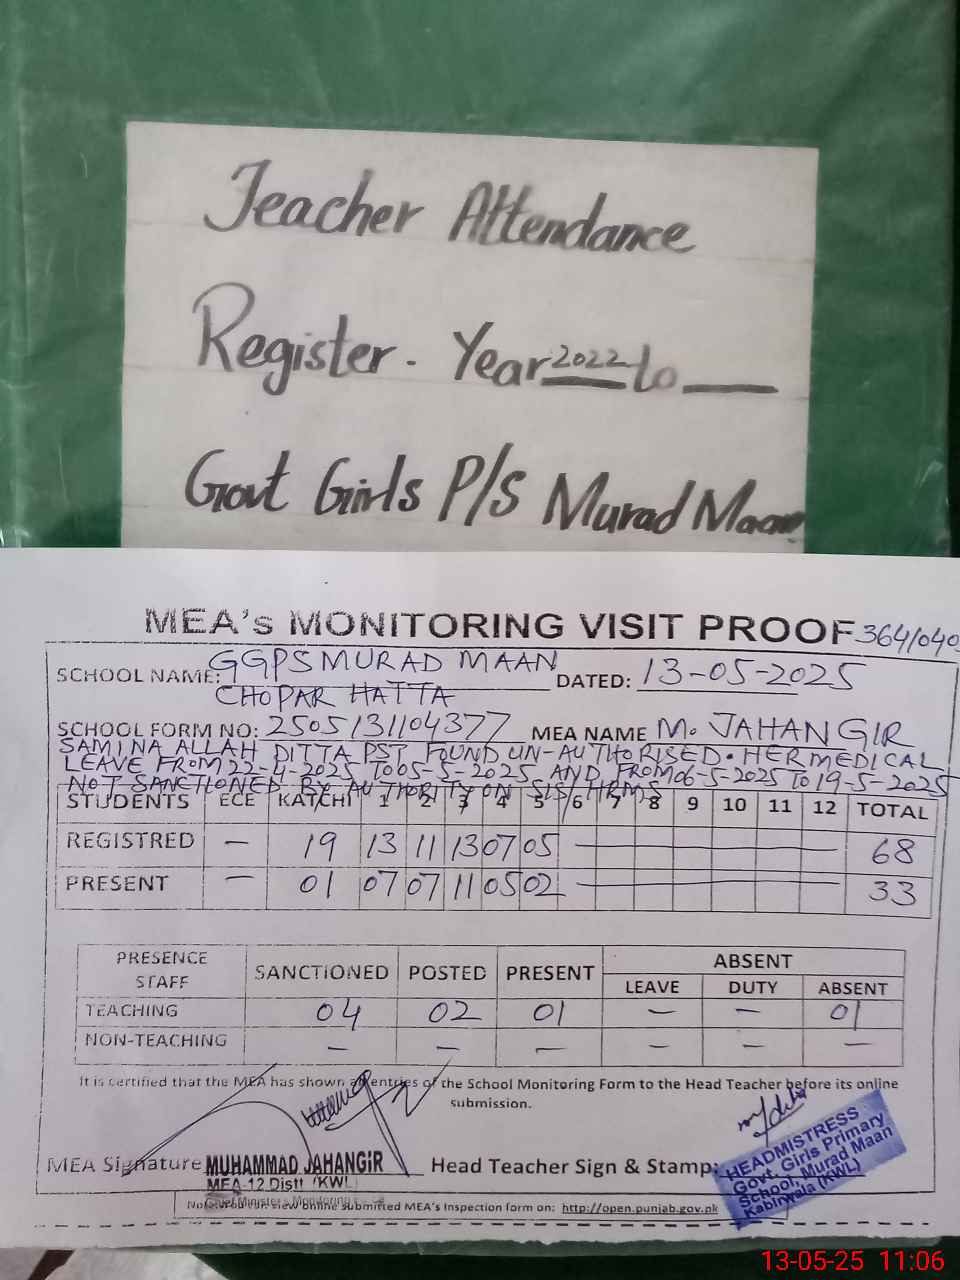 Teacher Attendance
Register. Year 2022 to ___
Govt Girls P/S Murad Maan
MEA's MONITORING VISIT PROOF 364/040
SCHOOL NAME: GGPS MURAD MAAN DATED: 13-05-2025
CHOPAR HATTA
SCHOOL FORM NO: 2505131104377 MEA NAME M. JAHANGIR
SAMINA ALLAH DITTA PST FOUND UN-AUTHORISED. HER MEDICAL
LEAVE FROM 22-4-2025 TO 05-5-2025 AND FROM 06-5-2025 TO 19-5-2025
NOT SANCTIONED BY AUTHORITY ON SIS/HRMS
STUDENTS ECE KATCHI 1 2 3 4 5 6 7 8 9 10 11 12 TOTAL
REGISTRED — 19 13 11 13 07 05 — 68
PRESENT — 01 07 07 11 05 02 — 33
PRESENCE STAFF SANCTIONED POSTED PRESENT ABSENT
LEAVE DUTY ABSENT
TEACHING 04 02 01 — — 01
NON-TEACHING — — — — — —
It is certified that the MEA has shown all entries of the School Monitoring Form to the Head Teacher before its online
submission.
MEA Signature MUHAMMAD JAHANGIR Head Teacher Sign & Stamp:
MEA-12 Distt (KWL)
HEADMISTRESS
Govt. Girls Primary
School, Murad Maan
Kabirwala (KWL)
Chief Minister's Monitoring
Note: You can view online submitted MEA's Inspection form on: http://open.punjab.gov.pk
13-05-25 11:06